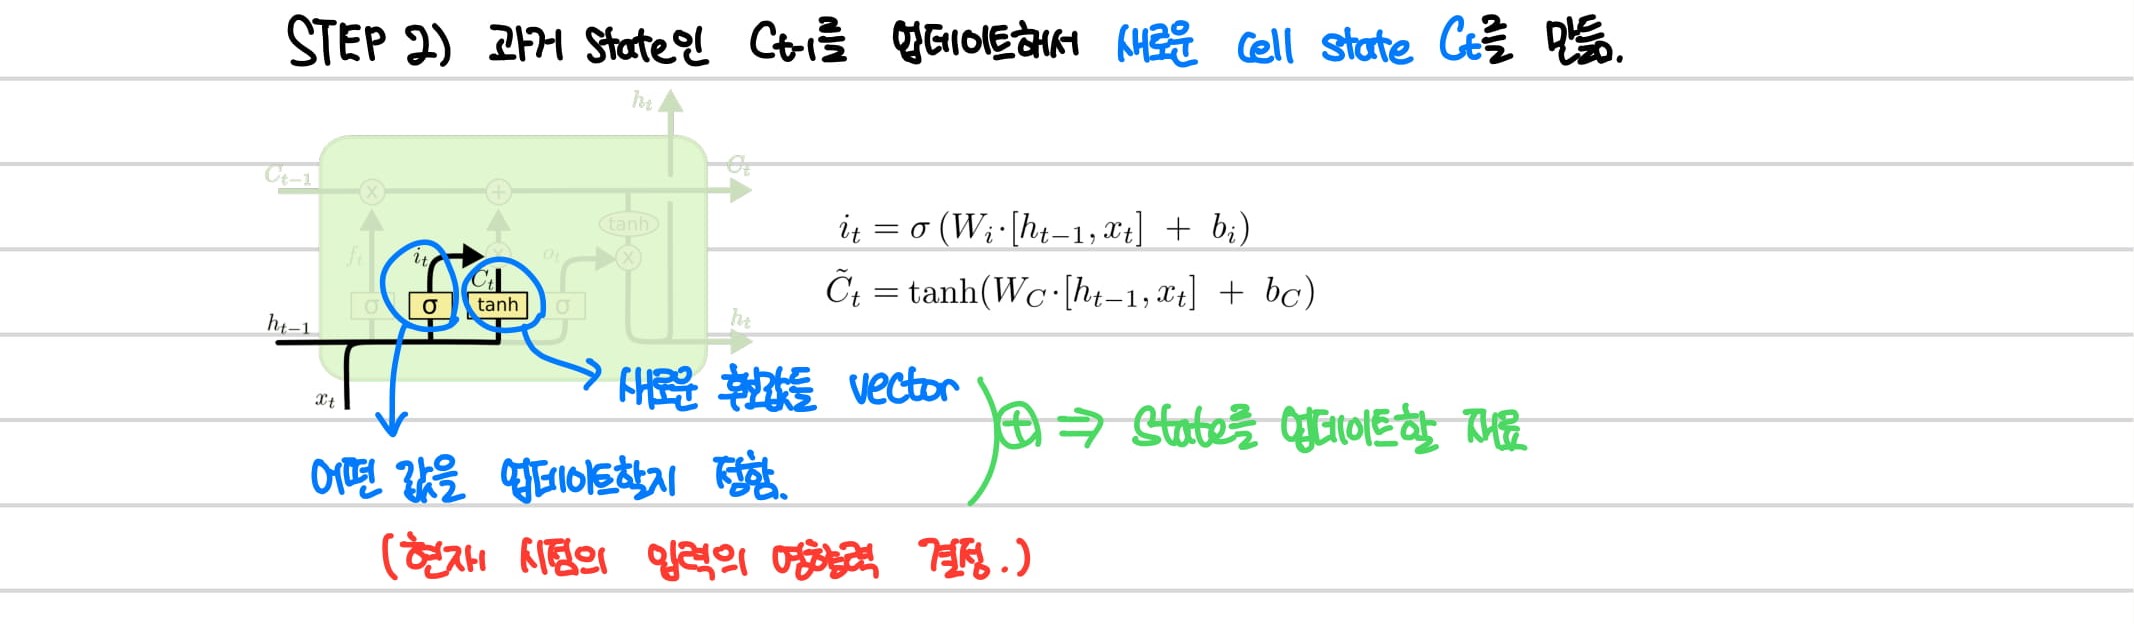 STEP 2) 과거 state인 Ct-1를 업데이트해서 새로운 cell state Ct를 만듦.
h_t
C_{t-1}
C_t
tanh
f_t
i_t
o_t
C̃_t
σ σ tanh σ
h_{t-1}
h_t
x_t
i_t = σ (W_i·[h_{t-1}, x_t] + b_i)
C̃_t = tanh(W_C·[h_{t-1}, x_t] + b_C)
새로운 후보값들 vector
⊕ ⇒ State를 업데이트할 재료
어떤 값을 업데이트할지 정함.
(현재 시점의 입력의 영향력 결정.)